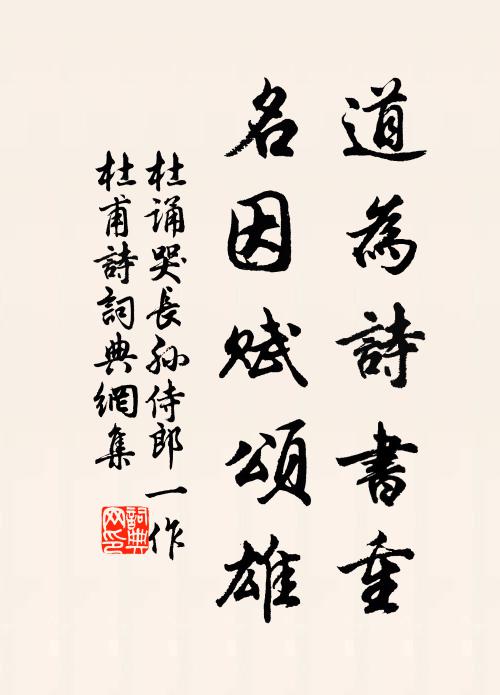 道為詩書重
名因賦頌雄
杜誦哭長孫侍郎一作
杜甫詩詞典網集
詞典
网印